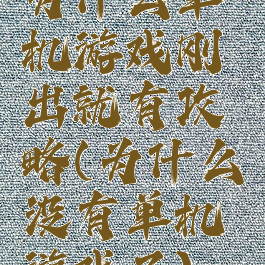 有什么单
机游戏刚
出就有攻
略(为什么
没有单机
游戏了)